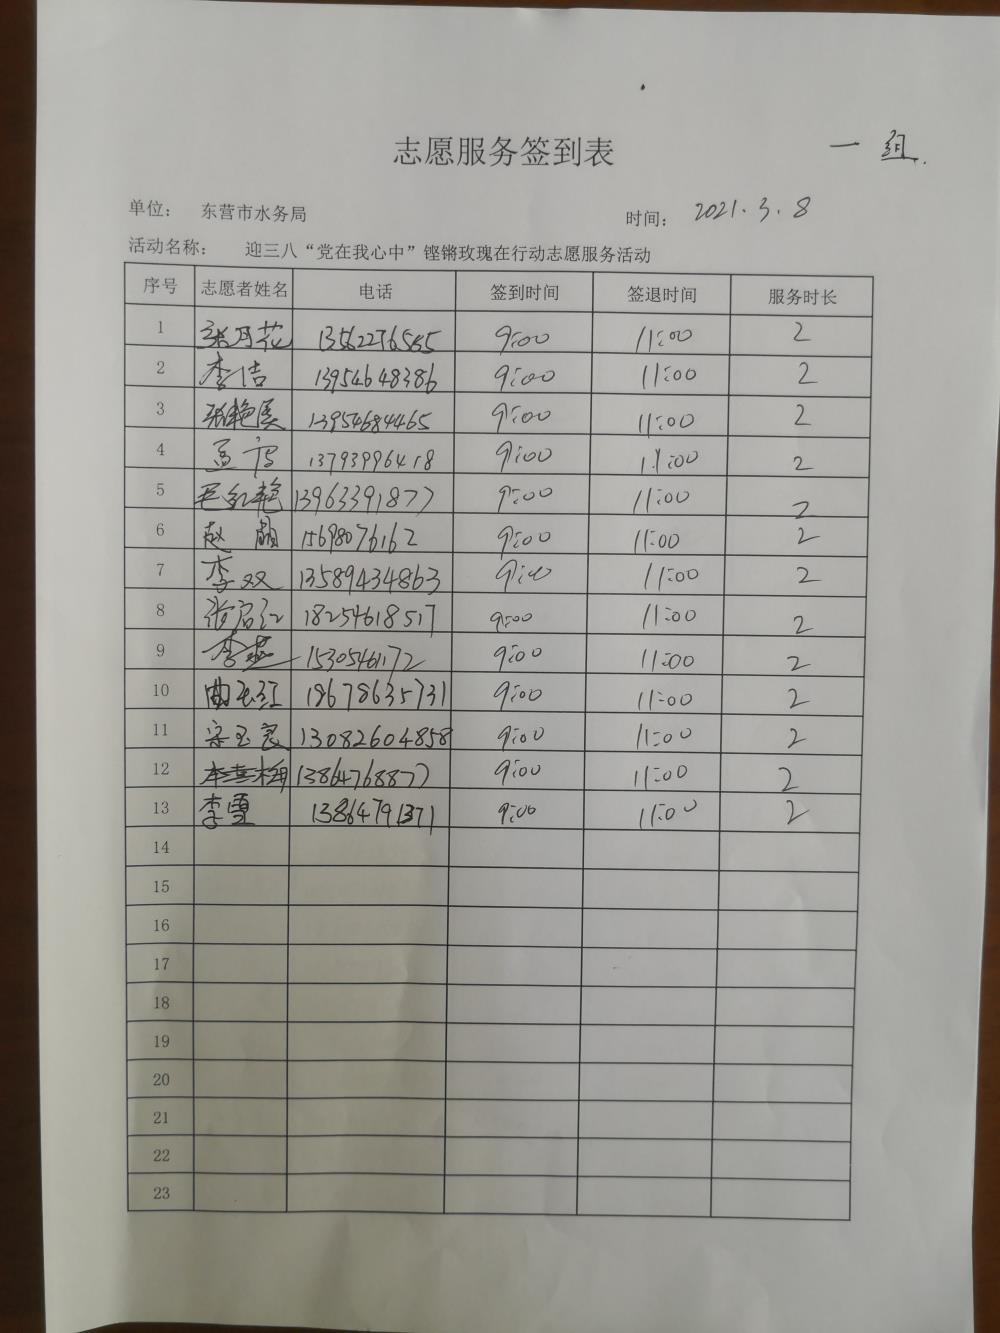 志愿服务签到表 一组.
单位： 东营市水务局 时间： 2021.3.8
活动名称： 迎三八“党在我心中”铿锵玫瑰在行动志愿服务活动
序号 志愿者姓名 电话 签到时间 签退时间 服务时长
1 张月花 13562276565 9:00 11:00 2
2 李洁 13954648386 9:00 11:00 2
3 13954684465 9:00 11:00 2
4 13793996418 9:00 11:00 2
5 毛红艳 13963391877 9:00 11:00 2
6 赵娟 15698076162 9:00 11:00 2
7 李双 13589434863 9:00 11:00 2
8 18254618517 9:00 11:00 2
9 李燕 15305461172 9:00 11:00 2
10 18678635731 9:00 11:00 2
11 宋玉良 13082604858 9:00 11:00 2
12 13864768877 9:00 11:00 2
13 李雪 13864791371 9:00 11:00 2
14
15
16
17
18
19
20
21
22
23